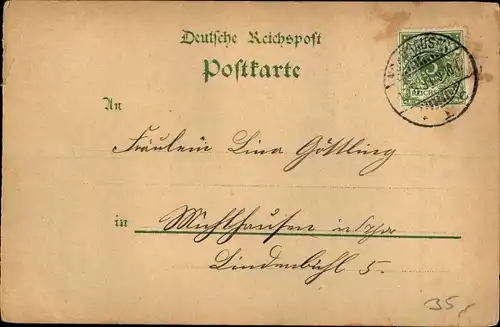 Deutsche Reichspost
Postkarte
5
REICHSPOST
An
Fräulein Lina Göttling
in Mühlhausen i/Thür
Lindenbühl 5.
35,-